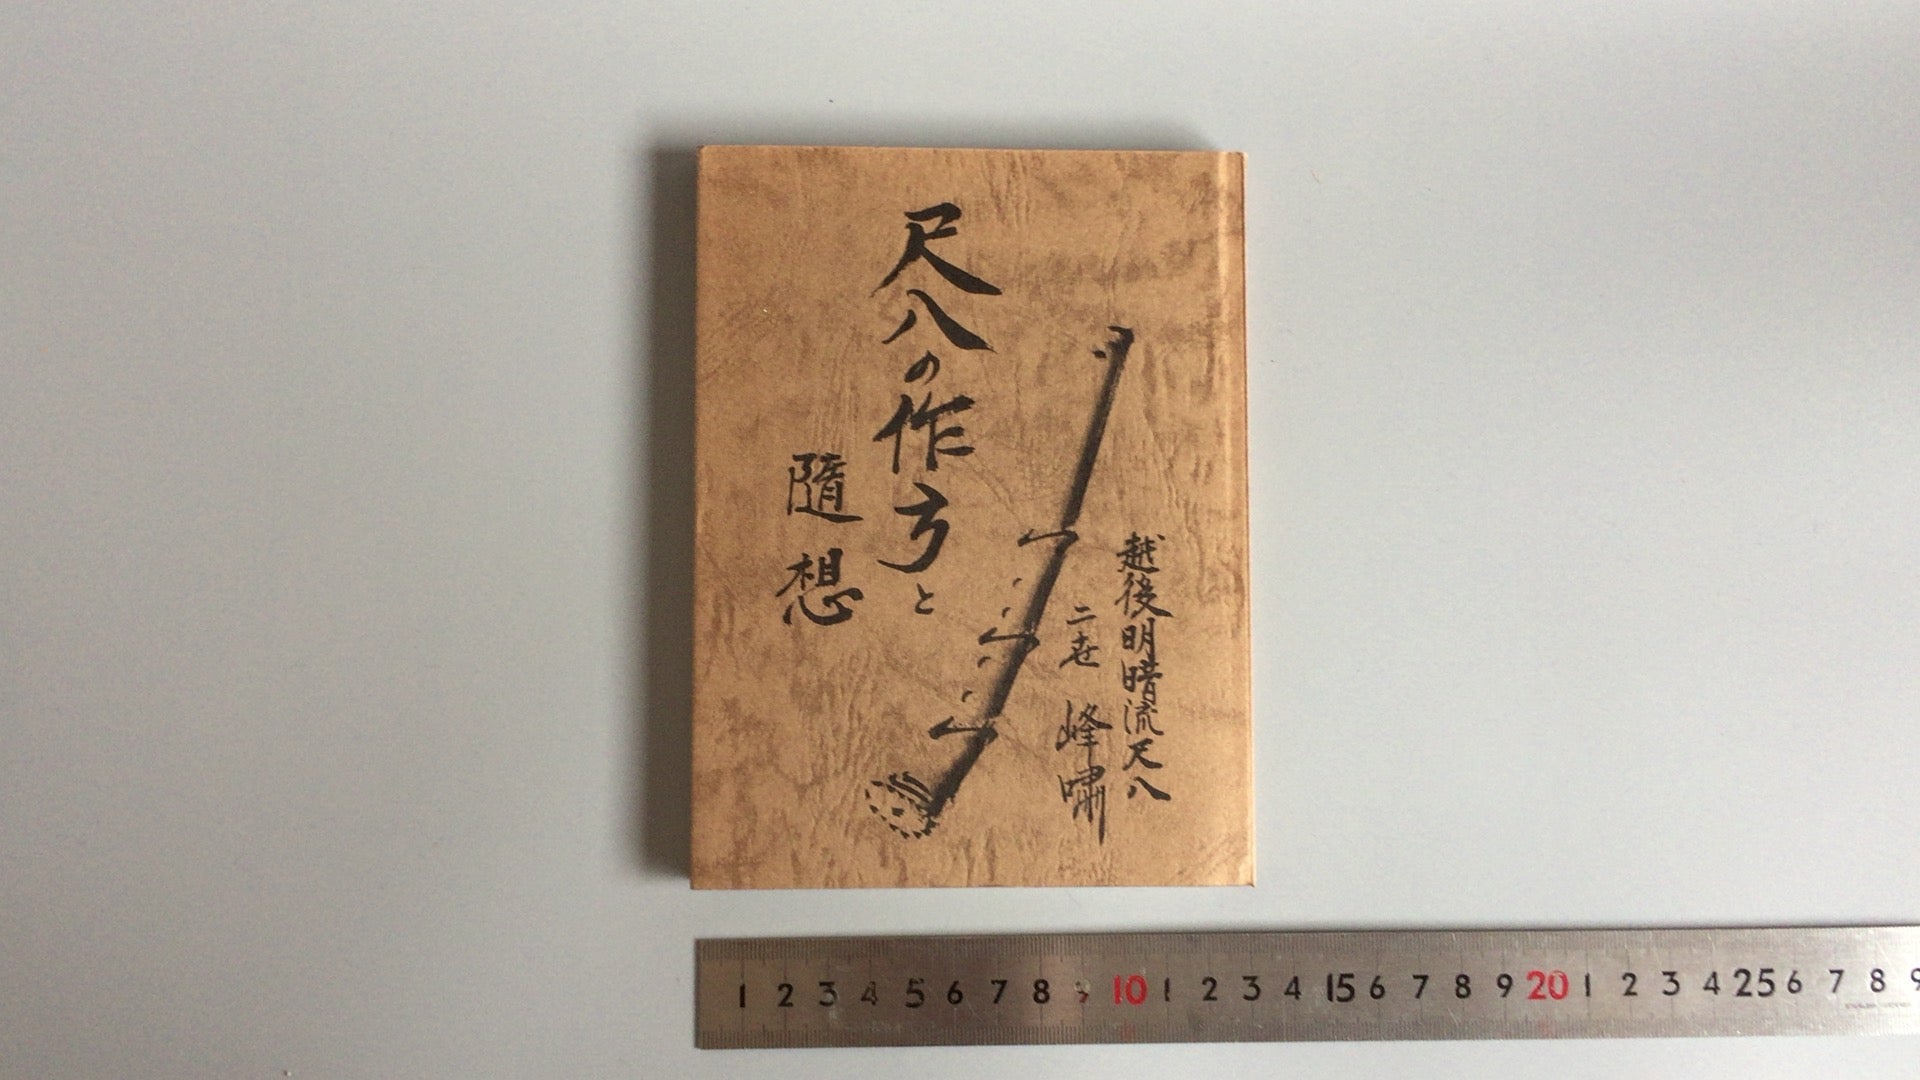 尺八の作り方と
随想
越後明暗流尺八
二世 峰嘯
1 2 3 4 5 6 7 8 9 10 1 2 3 4 15 6 7 8 9 20 1 2 3 4 25 6 7 8 9